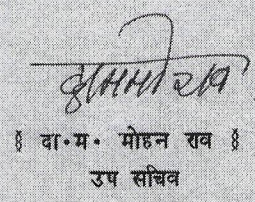 § दा॰म॰ मोहन राव §
उप सचिव